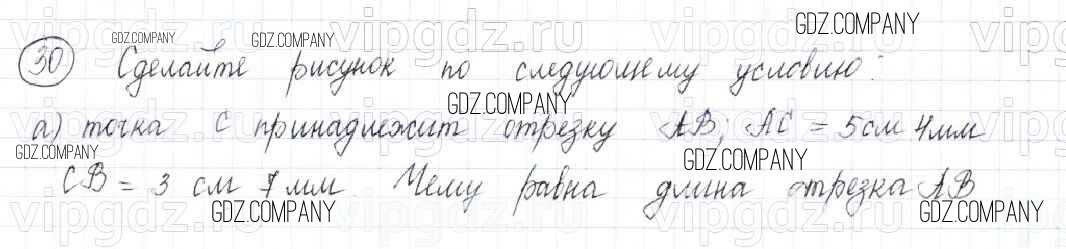 GDZ.COMPANY
30 Сделайте рисунок по следующему условию:
GDZ.COMPANY GDZ.COMPANY
GDZ.COMPANY
а) точка С принадлежит отрезку АВ; АС = 5 см 4 мм
GDZ.COMPANY GDZ.COMPANY
СВ = 3 см 7 мм. Чему равна длина отрезка АВ
GDZ.COMPANY GDZ.COMPANY
vipgdz.com